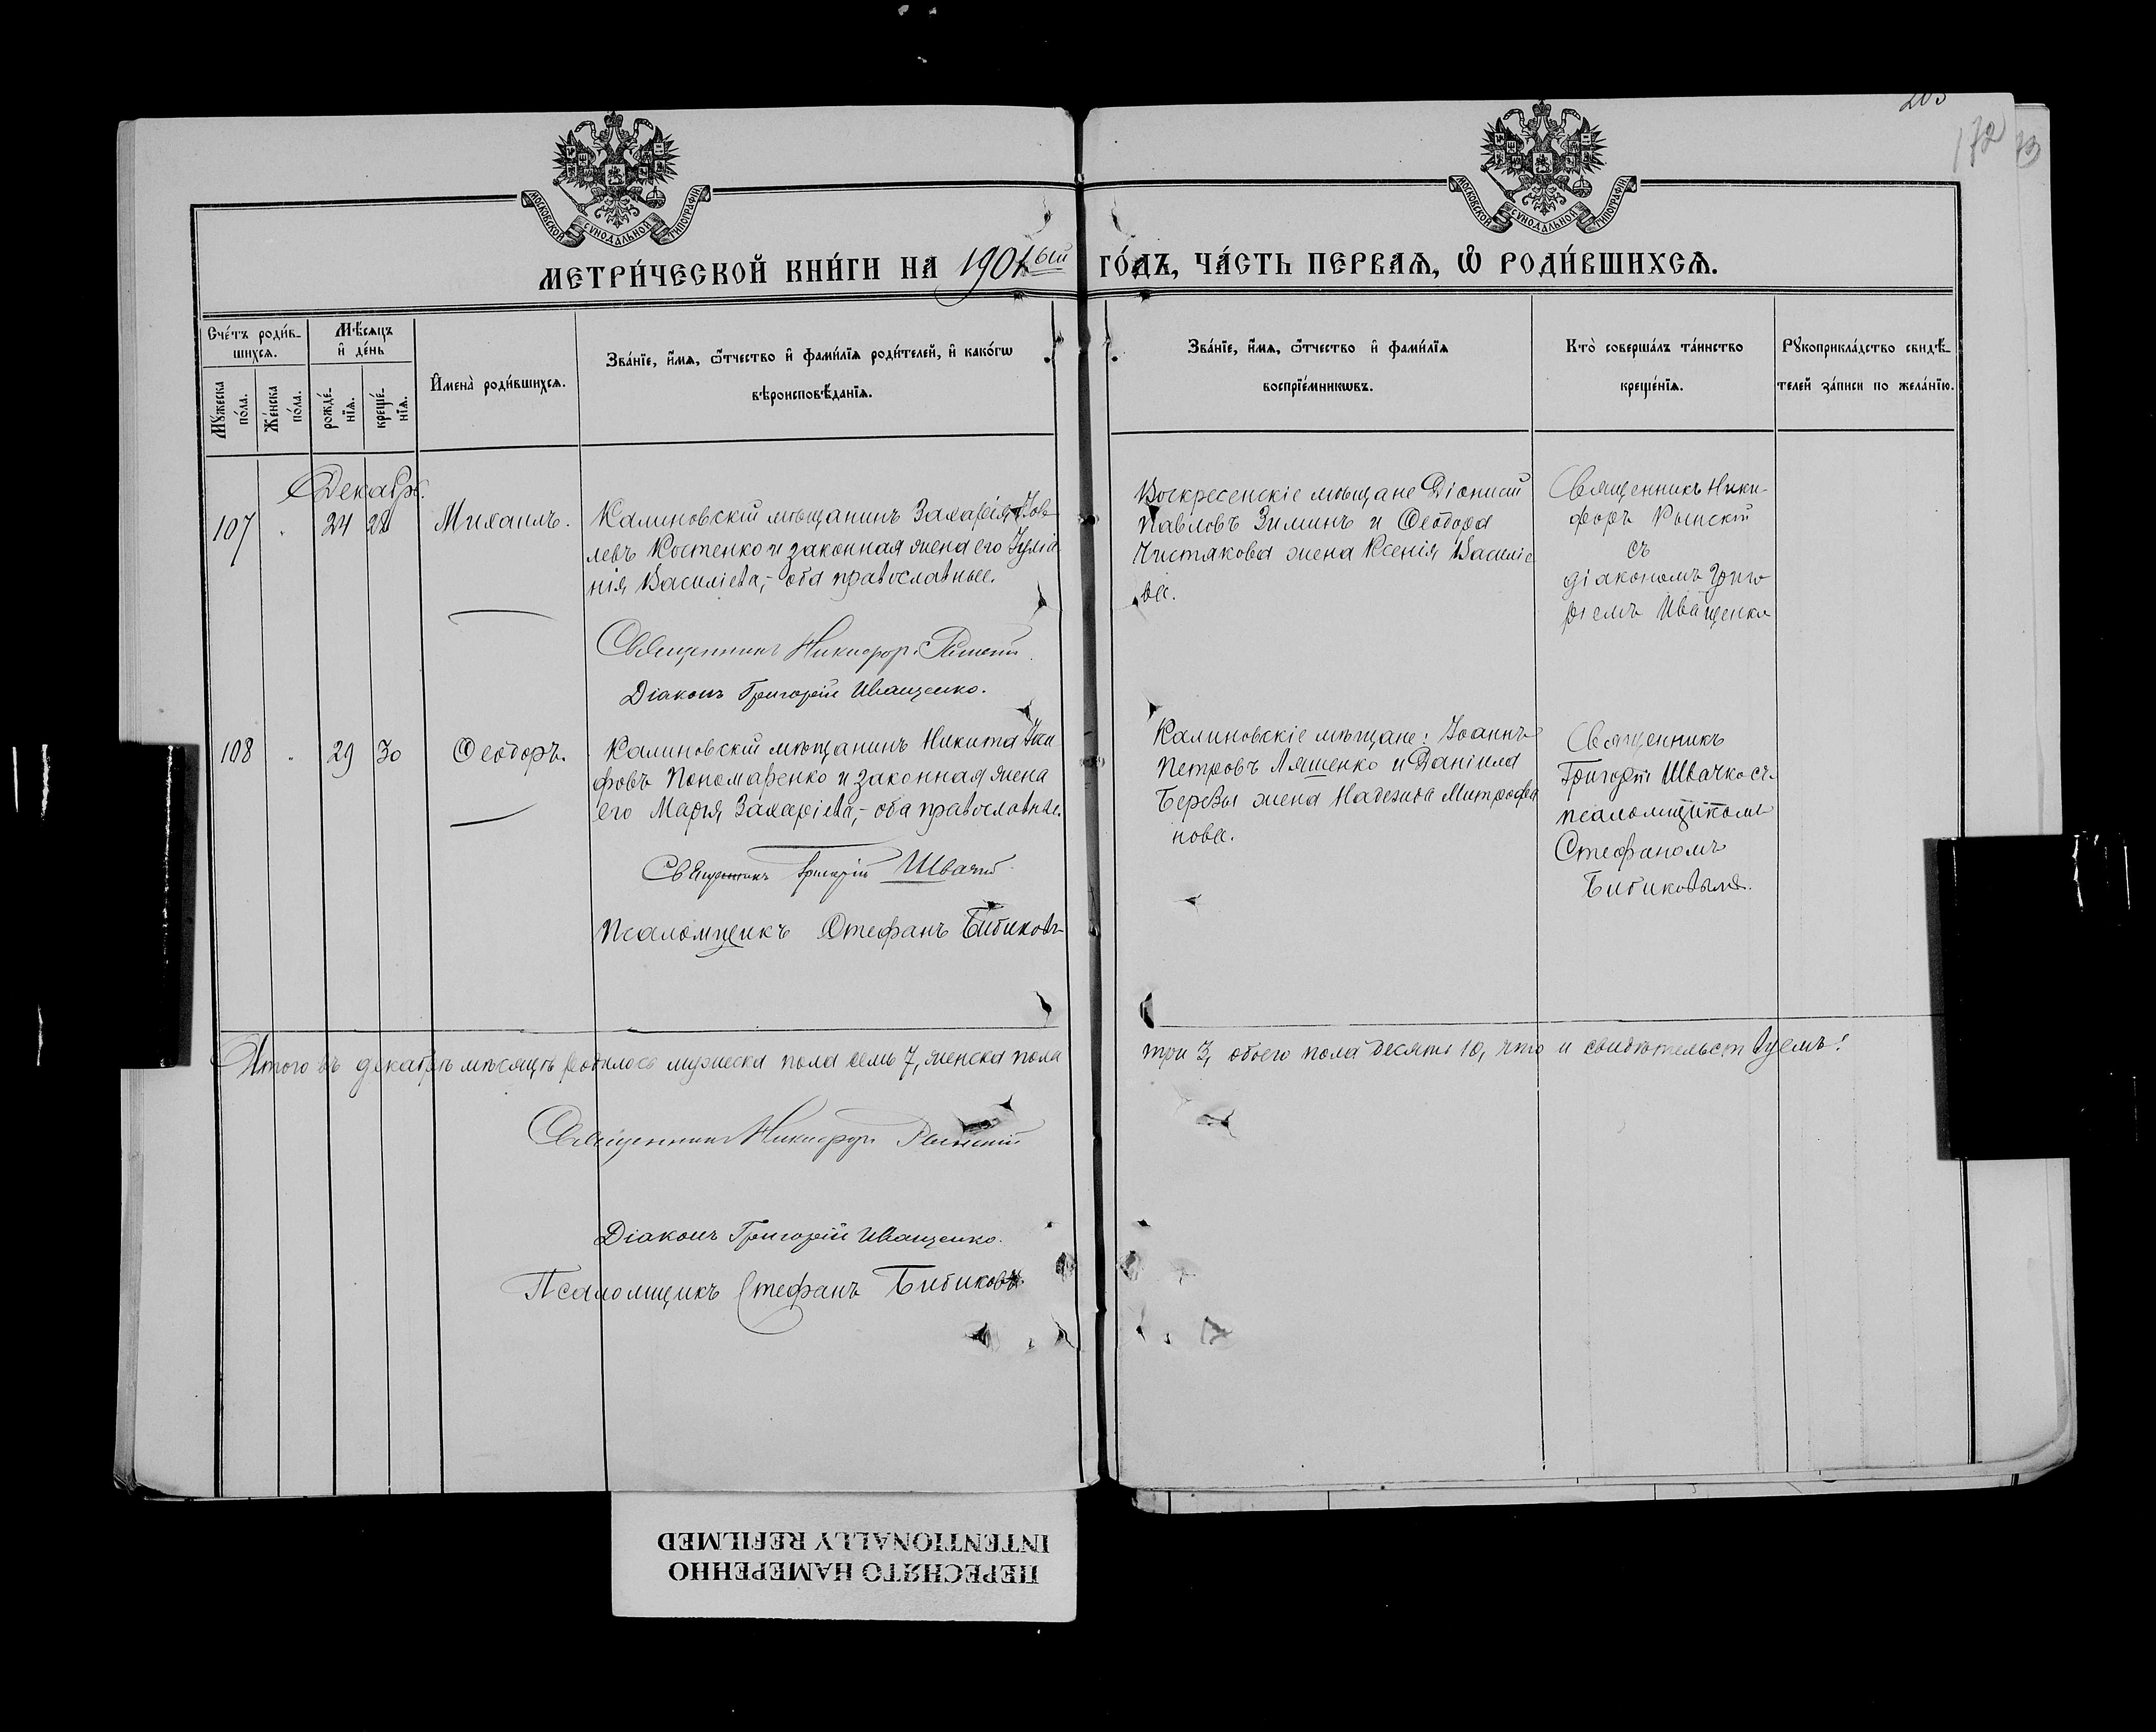 172
73
МОСКОВСКОЙ СѴНОДАЛЬНОЙ ТИПОГРАФІИ
МОСКОВСКОЙ СѴНОДАЛЬНОЙ ТИПОГРАФІИ
МЕТРИ́ЧЕСКОЙ КНИ́ГИ НА 1901ый ГО́ДЪ, ЧА́СТЬ ПЕРВАѦ, Ѡ РОДИ́ВШИХСѦ.
Сче́тъ роди́в-
шихсѧ.
Мꙋ́жеска
по́ла.
Же́нска
по́ла.
Мѣ́сѧцъ
и҆ де́нь
рожде́-
нїѧ.
креще́-
нїѧ.
И҆мена̀ роди́вшихсѧ.
Зва́нїе, и҆́мѧ, ѻ҆́тчество и҆ фами́лїѧ роди́телей, и҆ како́гѡ
вѣроисповѣ́данїѧ.
Зва́нїе, и҆́мѧ, ѻ҆́тчество и҆ фами́лїѧ
воспрїе́мникѡвъ.
Кто̀ соверша́лъ та́инство
креще́нїѧ.
Рꙋкоприкла́дство свидѣ́-
телей за́писи по жела́нїю.
Декабрь.
107 " 24 28 Михаилъ.
Калиновскій мѣщанинъ Захарія Іов-
левъ Костенко и законная жена его Іуліа
нія Василіева,- оба православные.
Священникъ Никифоръ
Діаконъ Григорій Иващенко.
Воскресенскіе мѣщане Діонисій
Павловъ Зиминъ и Ѳеодора
Чистякова жена Ксенія Василіе
ва.
Священникъ Ники-
форъ
съ
діакономъ Григо
ріемъ Иващенко
108 " 29 30 Ѳеодоръ.
Калиновскій мѣщанинъ Никита
Пономаренко и законная жена
его Марія Захаріева,- оба православные.
Священникъ Григорій Швачко
Псаломщикъ Стефанъ Бибиковъ
Калиновскіе мѣщане: Іоаннъ
Петровъ Ляшенко и Даніила
Березы жена Надежда Митрофа
нова.
Священникъ
Григорій Швачко съ
псаломщикомъ
Стефаномъ
Бибиковымъ.
Итого въ декабрѣ мѣсяцѣ родилось мужеска пола семь 7, женска пола три 3, обоего пола десять 10, что и свидѣтельствуемъ:
Священникъ Никифоръ
Діаконъ Григорій Иващенко.
Псаломщикъ Стефанъ Бибиковъ
ПЕРЕСНЯТО НАМЕРЕННО
INTENTIONALLY REFILMED